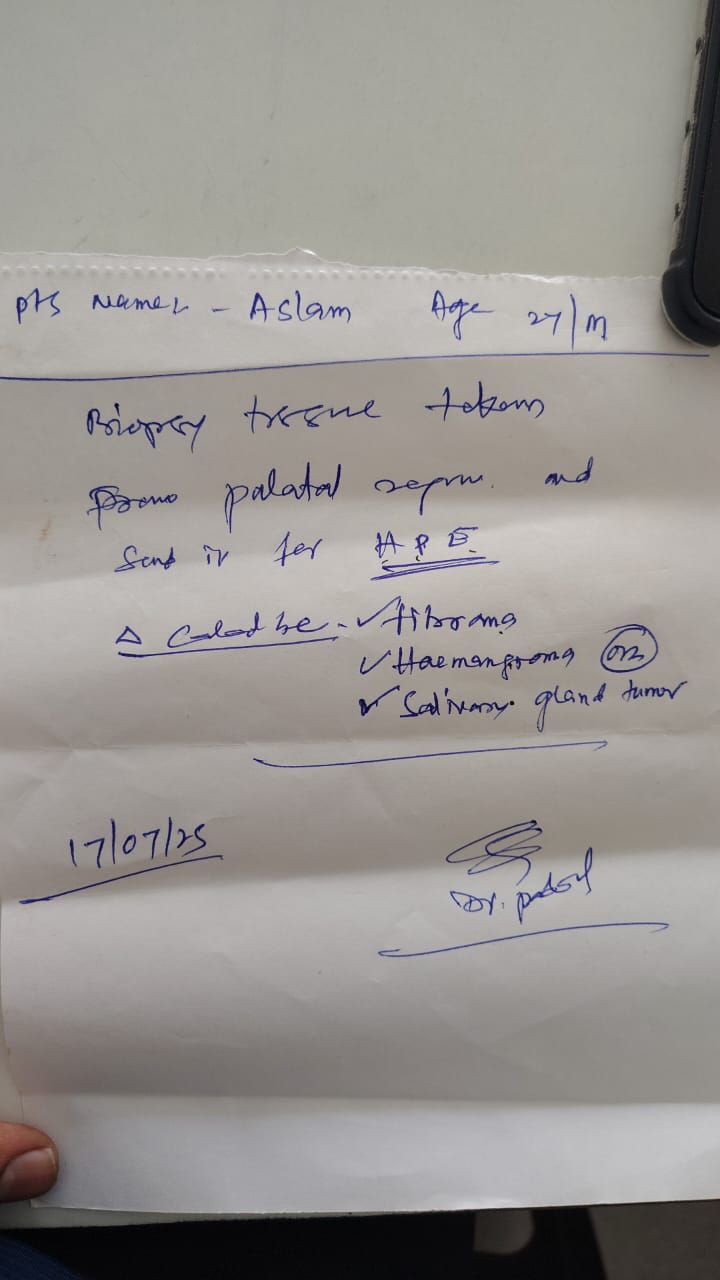 pts Name:- - Aslam Age 27/M
Biopsy tissue taken
from palatal region. and
Send it for H.P.E.
Δ Could be - ✓ fibroma
✓ Haemangioma (or)
✓ Salivary gland tumor
17/07/25
Dr.